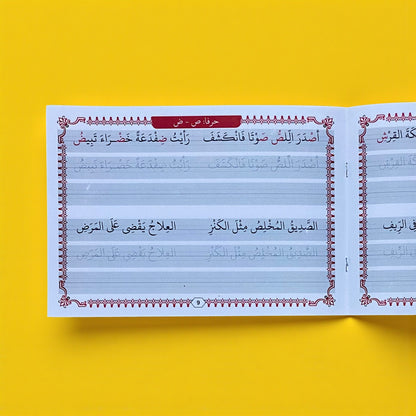 حرفا: ص - ض
أَصْدَرَ الِّلصُّ صَوْتًا فَانْكَشَفَ رَأَيْتُ ضِفْدَعَةً خَضْرَاءَ تَبِيضُ
أَصْدَرَ الِّلصُّ صَوْتًا فَانْكَشَفَ رَأَيْتُ ضِفْدَعَةً خَضْرَاءَ تَبِيضُ
الصَّدِيقُ المُخْلِصُ مِثْلَ الكَنْزِ العِلاجُ يَقْضِى عَلَى المَرَضِ
الصَّدِيقُ المُخْلِصُ مِثْلَ الكَنْزِ العِلاجُ يَقْضِى عَلَى المَرَضِ
9
القِرْشِ
القِرْشِ
الرِّيفِ
الرِّيفِ